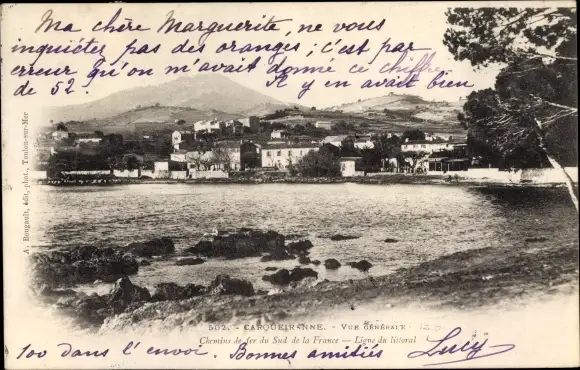 Ma chère Marguerite, ne vous
inquiéter pas des oranges ; c'est par
erreur qu'on m'avait donné ce chiffre
de 52. Il y en avait bien
A. Bougault, édit.-phot., Toulon-sur-Mer
502. - CARQUEIRANNE. - VUE GÉNÉRALE
Chemins de fer du Sud de la France — Ligne du littoral
100 dans l'envoi. Bonnes amitiés Lucy